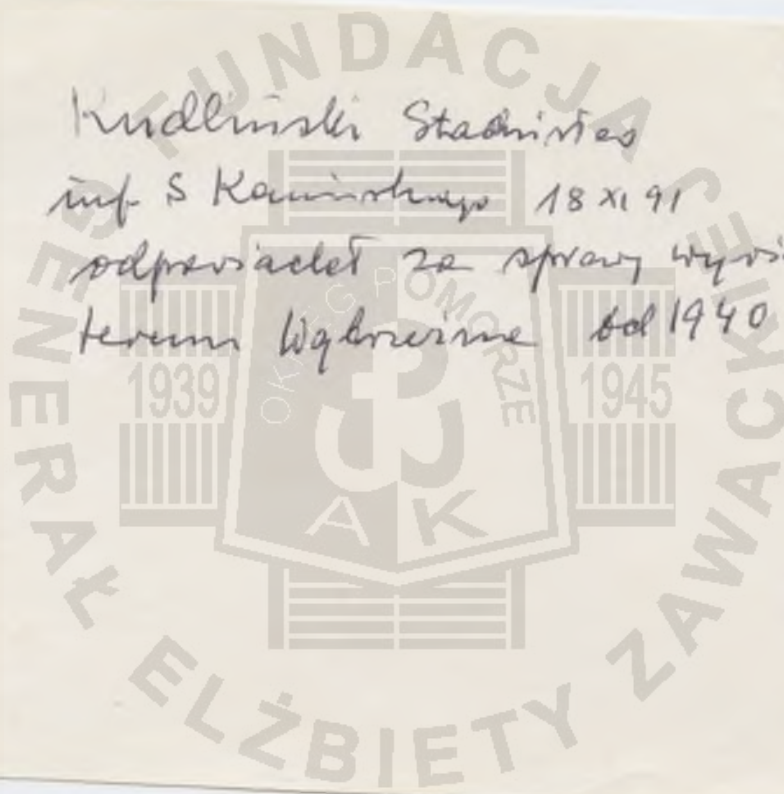 Kudliński Stanisław
inf. S Kamińskiego 18 XI 91
odpowiadał za sprawy
terenu Wąbrzeźna od 1940
FUNDACJA GENERAŁ ELŻBIETY ZAWACKIEJ
OKRĘG POMORZE
1939
1945
AK